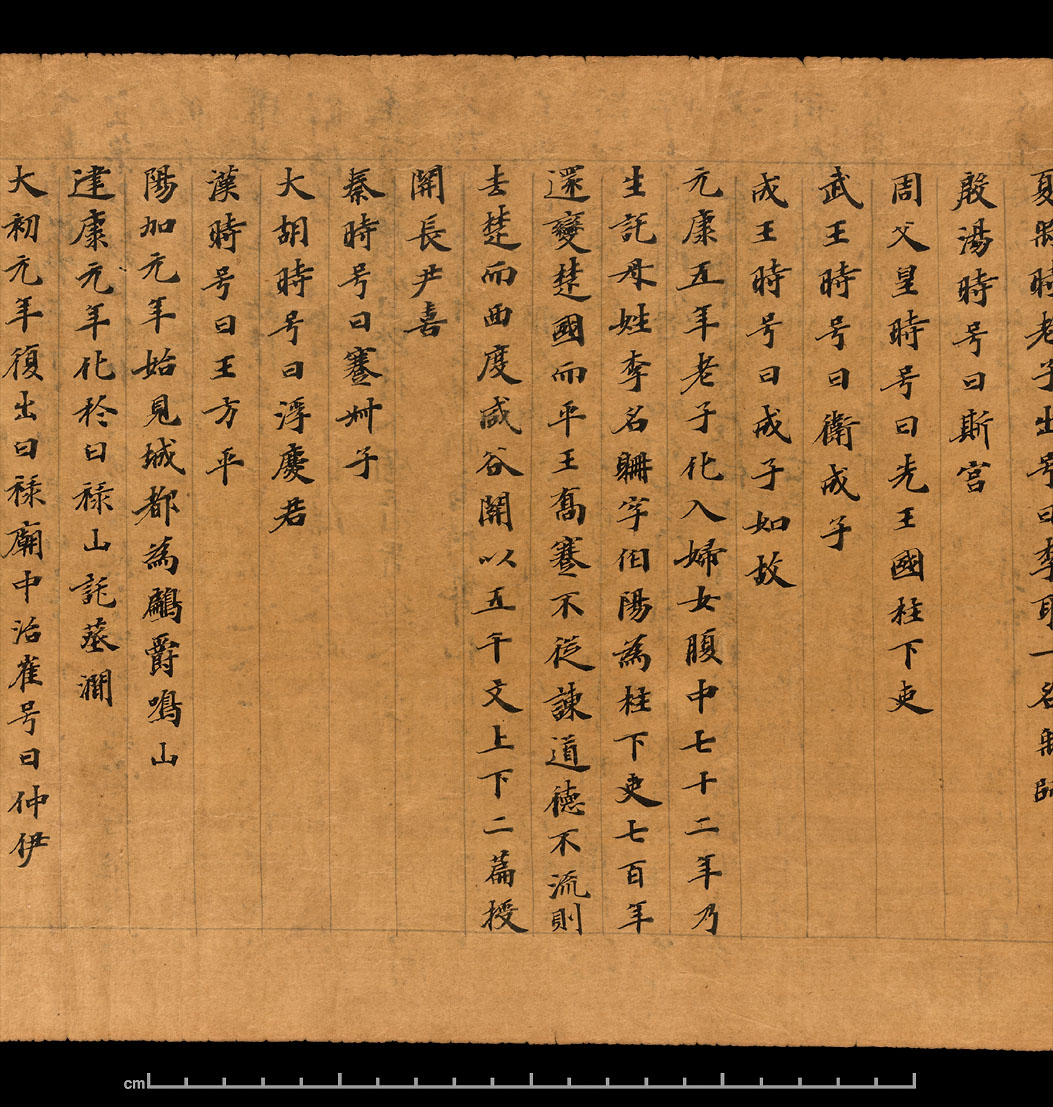 夏禹時老子出号曰李耳一名無師
殷湯時号曰斯宮
周父皇時号曰先王國柱下吏
武王時号曰衛成子
成王時号曰成子如故
元康五年老子化入婦女腹中七十二年乃
生託母姓李名聃字伯陽為柱下吏七百年
還變楚國而平王喬蹇不從諫道德不流則
去楚而西度咸谷關以五千文上下二篇授
關長尹喜
秦時号曰蹇叔子
大胡時号曰浮慶君
漢時号曰王方平
陽加元年始見城都為鸕爵鳴山
建康元年化於曰祿山託蒸澗
大初元年復出曰祿廟中治崔号曰仲伊
cm